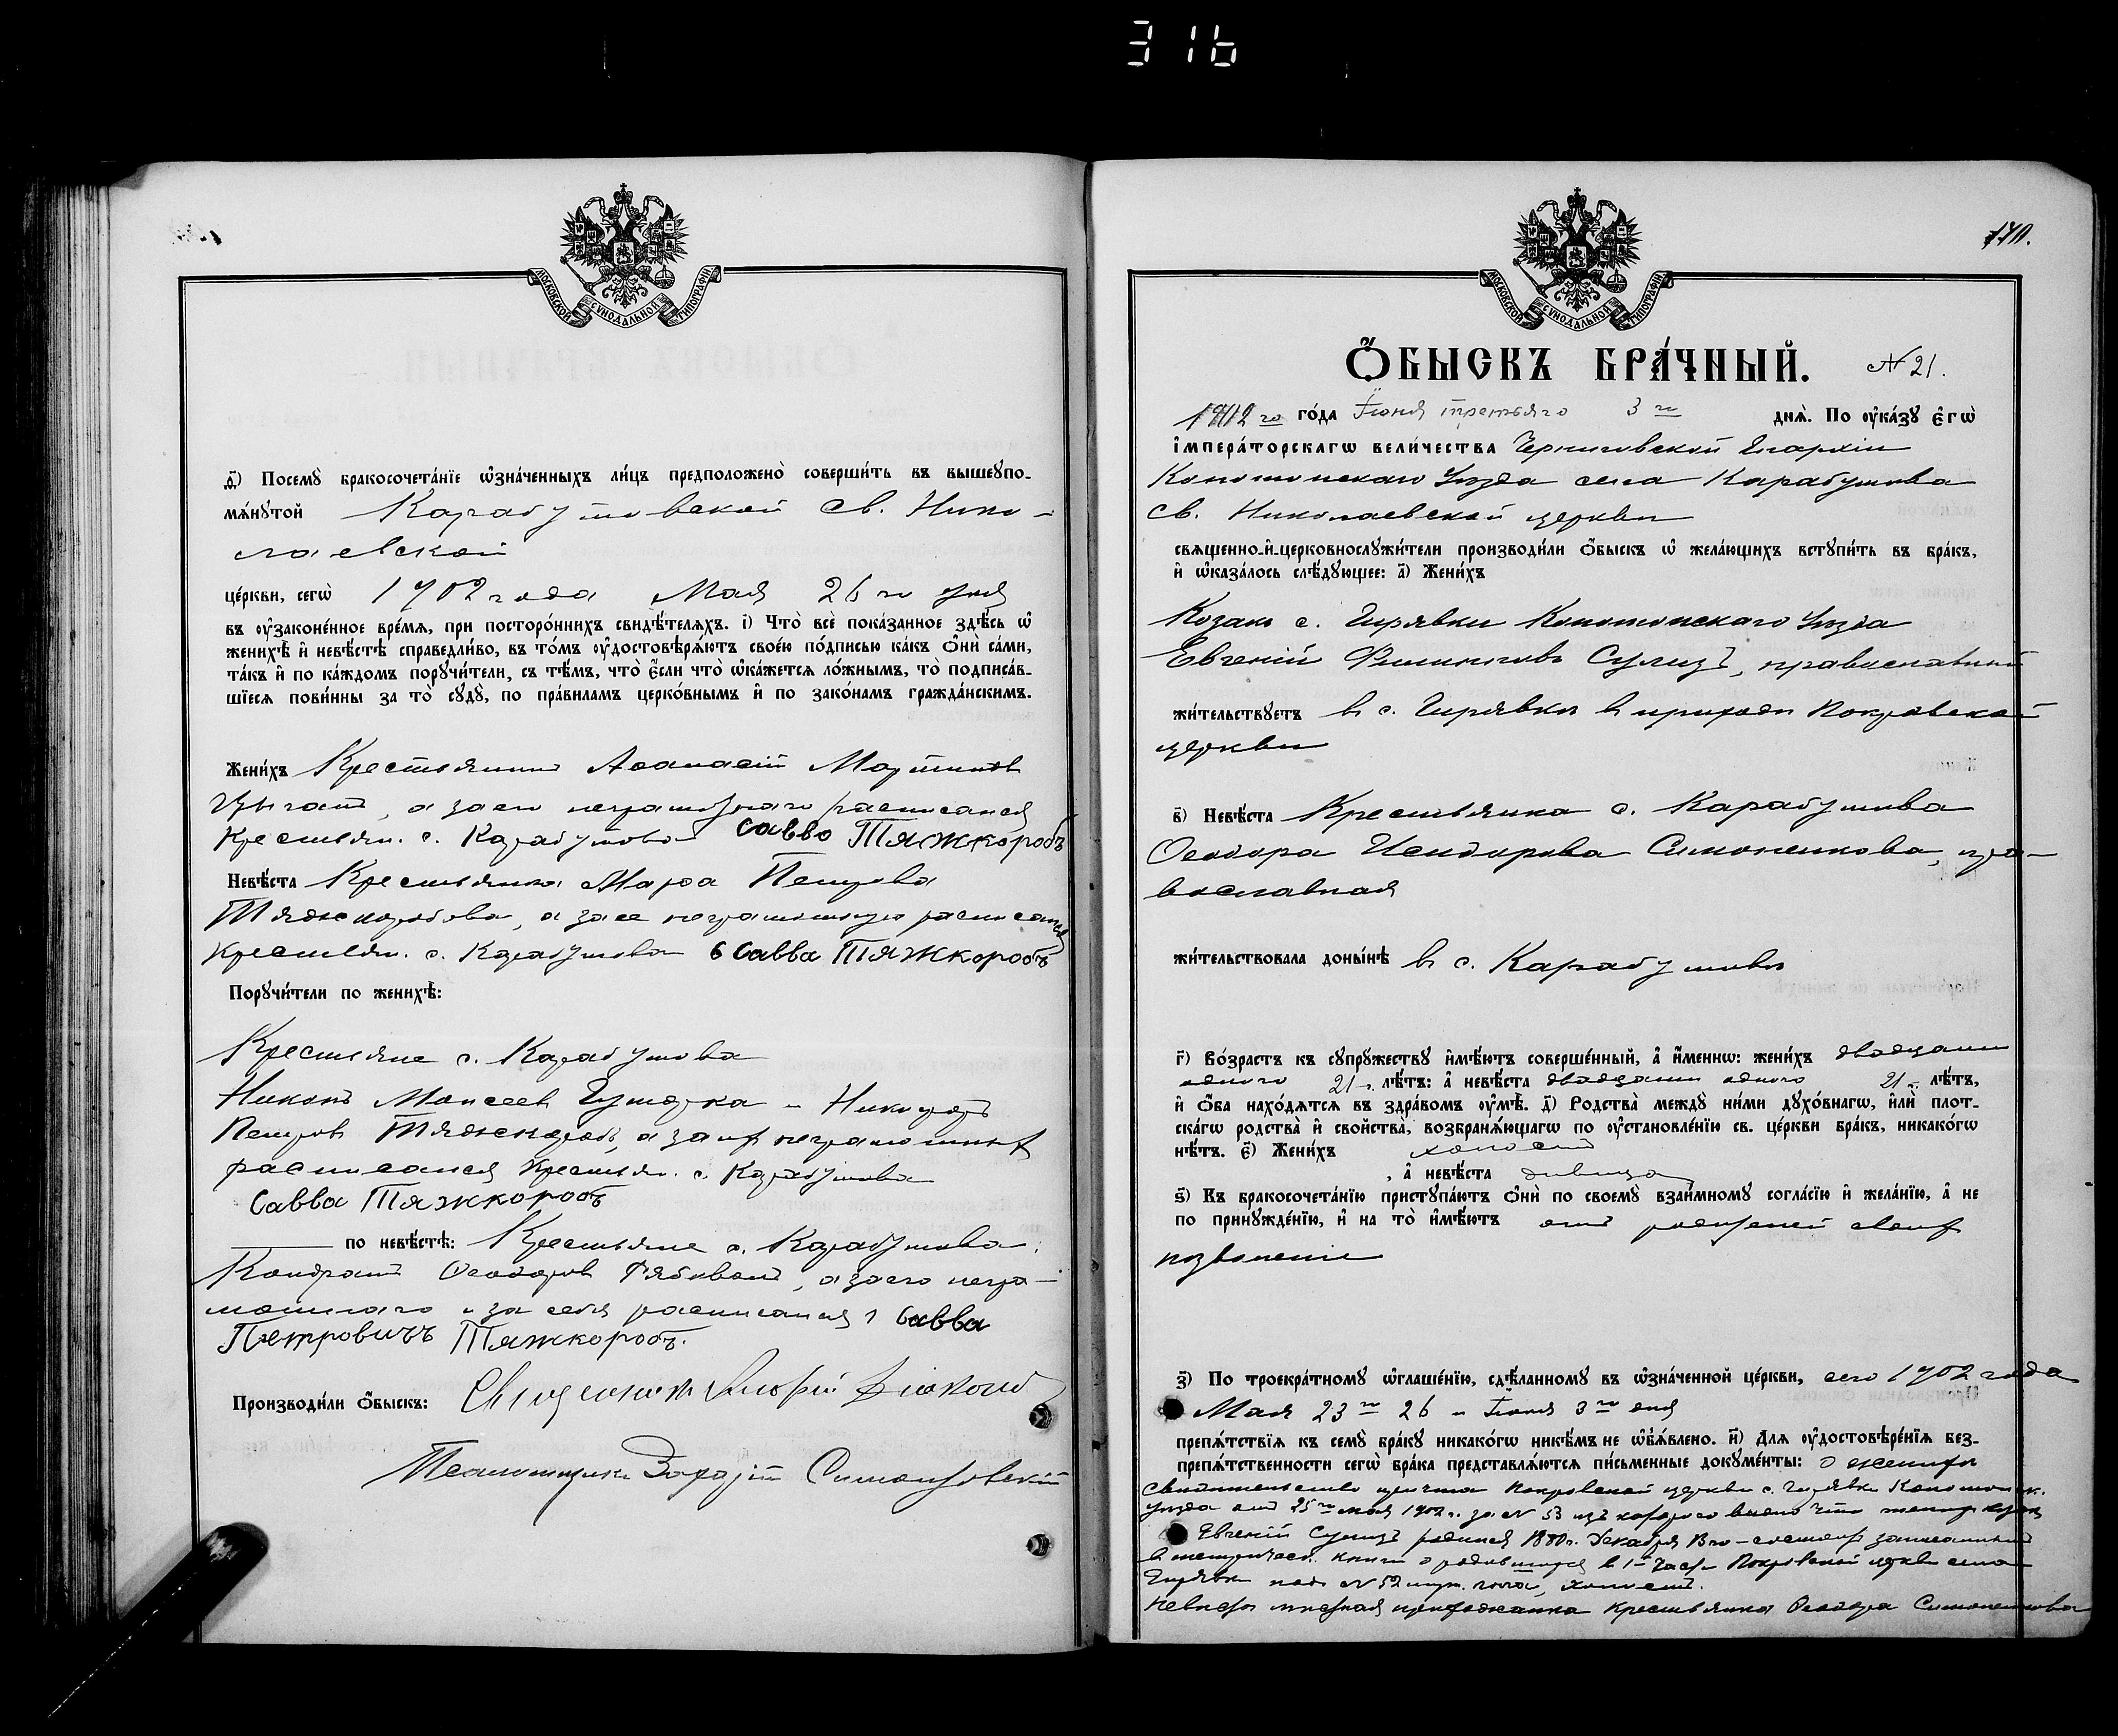 316
МОСКОВСКОЙ СУНОДАЛЬНОЙ ТИПОГРАФІИ
ѳ҃) Посемꙋ̀ бракосочета́нїе ѡ҆зна́ченныхъ ли́цъ предположено̀ соверши́ть въ вышеꙋпо-
мѧ́нꙋтой Карабутовской Св. Нико-
лаевской
це́ркви, сегѡ̀ 1902 года Мая 26 го дня
въ ᲂу҆законе́нное вре́мѧ, при посторо́ннихъ свидѣ́телѧхъ. і҃) Что̀ всѐ пока́занное здѣ́сь ѡ҆
женихѣ̀ и҆ невѣ́стѣ справедли́во, въ то́мъ ᲂу҆достовѣрѧ́ютъ свое́ю по́дписью ка́къ ѻ҆нѝ са́ми,
та́къ и҆ по ка́ждомъ порꙋчи́тели, съ тѣ́мъ, что̀ є҆́сли что̀ ѡ҆ка́жется ло́жнымъ, то̀ подписа́в-
шїесѧ пови́нны за то̀ сꙋдꙋ̀, по пра́виламъ церко́внымъ и҆ по зако́намъ гражда́нскимъ.
Жени́хъ Крестьянинъ Аѳанасій Мартиновъ
Цыганъ, а за его неграмотнаго расписался
Крестьян. с. Карабутова Савво Тяжкоробъ
Невѣ́ста Крестьянка Марѳа Петрова
Тяжкоробова, а за ее неграмотную расписался
Крестьян. с. Карабутова Савва Тяжкоробъ
Порꙋчи́тели по женихѣ̀:
Крестьяне с. Карабутова
Никонъ Моисеев и Никифоръ
Петров Тяжкоробъ, а за их неграмотных
расписался Крестьян. с. Карабутова
Савва Тяжкоробъ
по невѣ́стѣ: Крестьяне с. Карабутова
Кондратъ Ѳеодоров Рябоконь, а за его негра-
мотнаго и за себя расписался Савва
Петровичъ Тяжкоробъ.
Производи́ли ѻ҆́быскъ:
Псаломщикъ
170.
МОСКОВСКОЙ СУНОДАЛЬНОЙ ТИПОГРАФІИ
Ѻ҆́БЫСКЪ БРА́ЧНЫЙ. № 21.
1902 го го́да Іюня третьяго 3 го днѧ̀. По ᲂу҆ка́зꙋ є҆гѡ̀
і҆мпера́торскагѡ вели́чества Черниговской Епархіи
Конотопскаго Уѣзда села Карабутова
Св. Николаевской церкви
свѧще́нно-и҆-церковнослꙋжи́тели производи́ли ѻ҆́быскъ ѡ҆ жела́ющихъ встꙋпи́ть въ бра́къ,
и҆ ѡ҆каза́лось слѣ́дꙋющее: а҃) Жени́хъ
Козакъ с. Гирявки Конотопскаго Уѣзда
Евгеній Филиповъ Сулизъ, православный
жи́тельствꙋетъ в с. Гирявкѣ в приходѣ Покровской
церкви
в҃) Невѣ́ста Крестьянка с. Карабутова
Ѳеодора Исидорова Симоненкова, пра-
вославная
жи́тельствовала доны́нѣ в с. Карабутовѣ
г҃) Во́зрастъ къ сꙋпрꙋ́жествꙋ и҆мѣ́ютъ соверше́нный, а҆ и҆́меннѡ: жени́хъ двадцати
одного 21 г. лѣ́тъ: а҆ невѣ́ста двадцати одного 21 г. лѣ́тъ,
и҆ ѻ҆́ба нахо́дѧтсѧ въ здра́вомъ ᲂу҆мѣ̀. д҃) Родства̀ междꙋ̀ ни́ми дꙋхо́внагѡ, и҆лѝ плот-
ска́гѡ родства̀ и҆ сво́йства, возбранѧ́ющагѡ по ᲂу҆становле́нїю св. це́ркви бра́къ, никако́гѡ
нѣ́тъ. є҃) Жени́хъ холостъ
, а҆ невѣ́ста дивица
ѕ҃) Къ бракосочета́нїю пристꙋпа́ютъ ѻ҆нѝ по своемꙋ̀ взаи́мномꙋ согла́сїю и҆ жела́нїю, а҆ не
по принꙋжде́нїю, и҆ на то̀ и҆мѣ́ютъ отъ родителей своих
позволеніе
з҃) По троекра́тномꙋ ѡ҆глаше́нїю, сдѣ́ланномꙋ въ ѡ҆зна́ченной це́ркви, сего 1902 года
Мая 23 го 26 и Іюня 3 го дня
препѧ́тствїѧ къ семꙋ̀ бра́кꙋ никако́гѡ никѣ́мъ не ѡ҆б̾ѧ́влено. и҃) Длѧ ᲂу҆достовѣре́нїѧ без-
препѧ́тственности сегѡ̀ бра́ка представлѧ́ютсѧ пи́сьменные докꙋме́нты: О женихѣ
свидѣтельство причта Покровской церкви с. Гирявки Конотоп.
уѣзда отъ 25 го мая 1902 г. за № 53 изъ котораго видно что
Евгеній Сулизъ родился 1880 г. Декабря 13 го
в метрическ. книги о родившихся в 1-й части Покровской церкви села
Гирявки подъ № 52 холостъ.
Невѣста крестьянка Ѳеодора Симоненкова